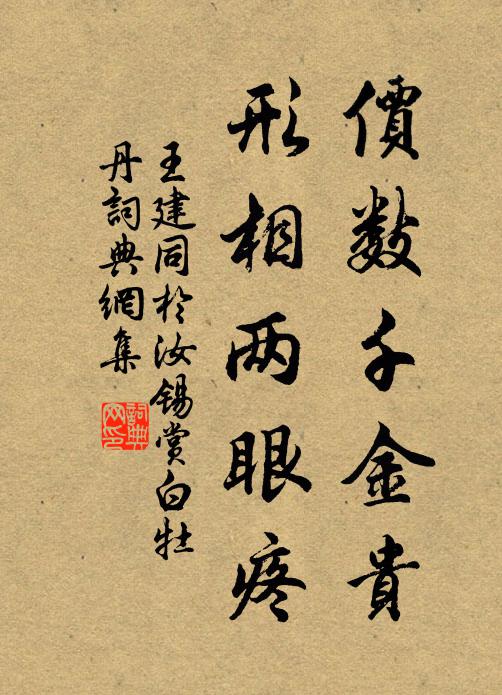 價數千金貴
形相两眼疼
王建同於汝锡賞白牡
丹詞典網集
詞典
网印